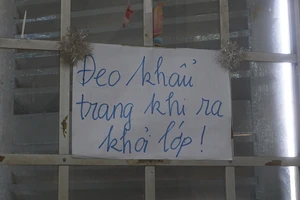 Đeo khẩu
trang khi ra
khỏi lớp !